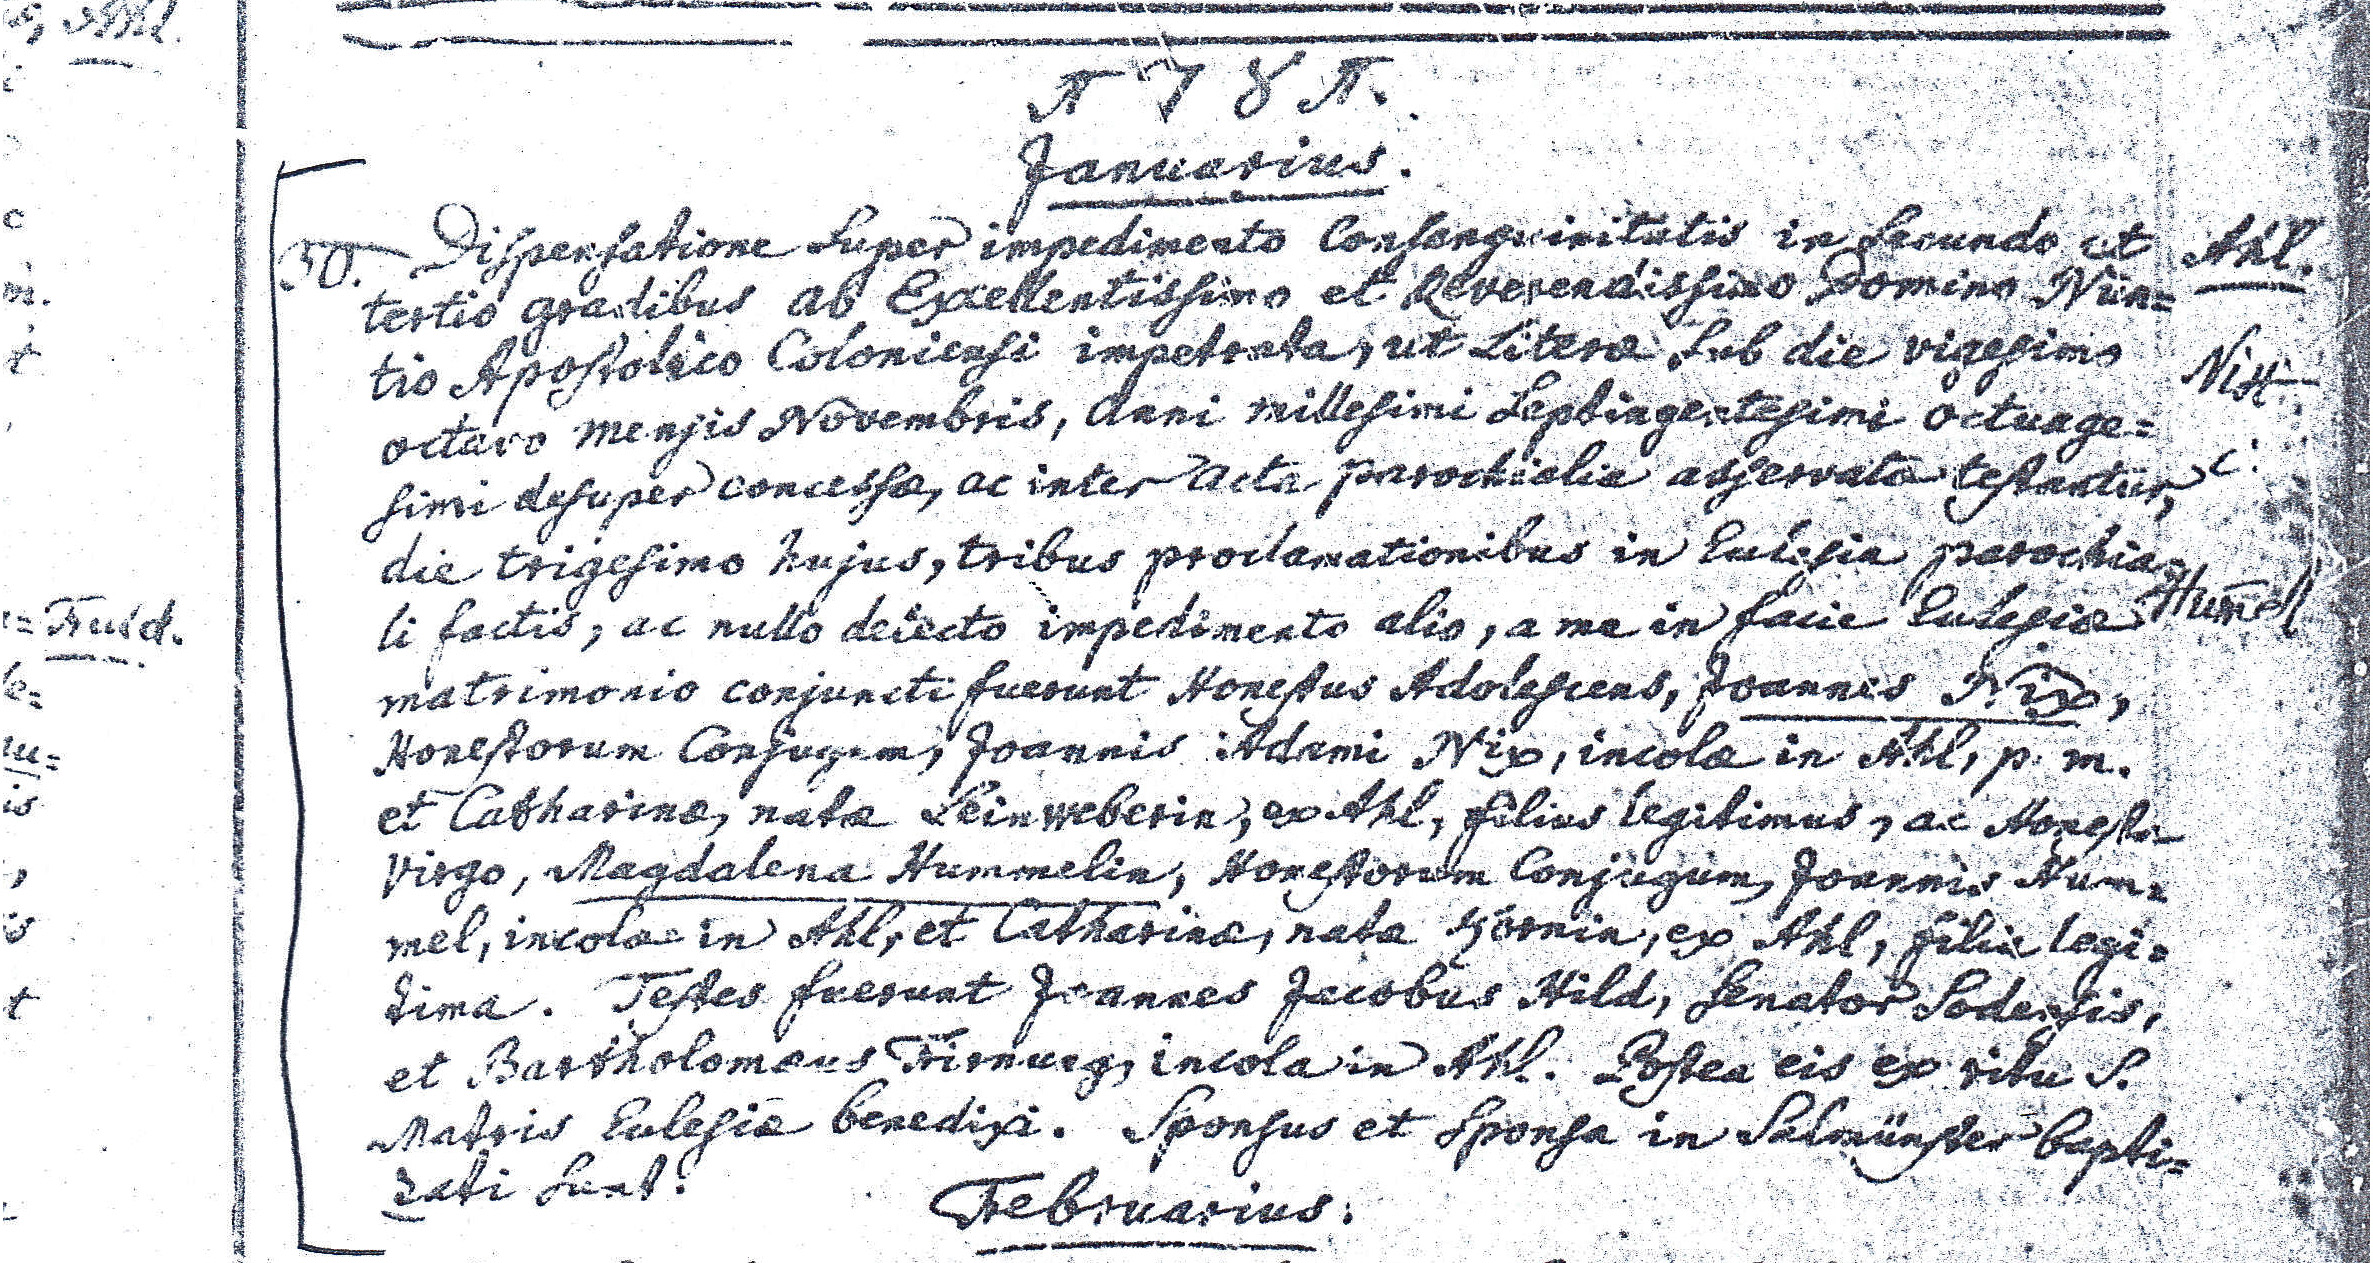 1781.
Januarius.
30. Dispensatione super impedimento Consanguinitatis in secundo et Ahl.
tertio gradibus ab Excellentissimo et Reverendissimo Domino Nün=
tio Apostolico Coloniensi impetrata, ut Literæ sub die vigesimo Nix
octavo mensis Novembris, Anni millesimi septingentesimi octuage=
simi desuper concessæ, ac inter acta parochialia asservatæ testantür, c.
die trigesimo hujus, tribus proclamationibus in Eclesia parochia=
li factis, ac nullo detecto impedimento alio, a me in facie Eclesiæ Hum̄el
matrimonio conjuncti fuerunt Honestus Adolescens, Joannes Nix,
Honestorum Conjugum, Joannis Adami Nix, incolæ in Ahl, p. m.
et Catharinæ, natæ Leinweberin, ex Ahl, filius legitimus, ac Honesta
Virgo, Magdalena Hummelin, Honestorum Conjugum, Joannis Hum=
mel, incolæ in Ahl, et Catharinæ, natæ Hörnin, ex Ahl, filia legi=
tima. Testes fuerunt Joannes Jacobus Hild, Senator Sodensis,
et Bartholomæus Firnung, incola in Ahl. Postea eis ex ritu S.
Matris Eclesiæ benedixi. Sponsus et Sponsa in Salmünster bapti=
zati sunt.
Februarius.